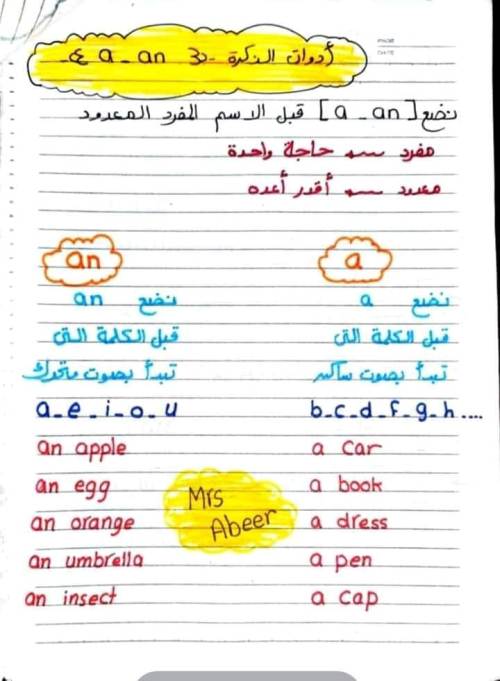 أدوات النكرة a - an
نضع [a - an] قبل الاسم المفرد المعدود
مفرد ← حاجة واحدة
معدود ← أقدر أعده
a
نضع a
قبل الكلمة التى
تبدأ بصوت ساكن
b-c-d-f-g-h....
a car
a book
a dress
a pen
a cap
an
نضع an
قبل الكلمة التى
تبدأ بصوت متحرك
a-e-i-o-u
an apple
an egg
an orange
an umbrella
an insect
Mrs
Abeer